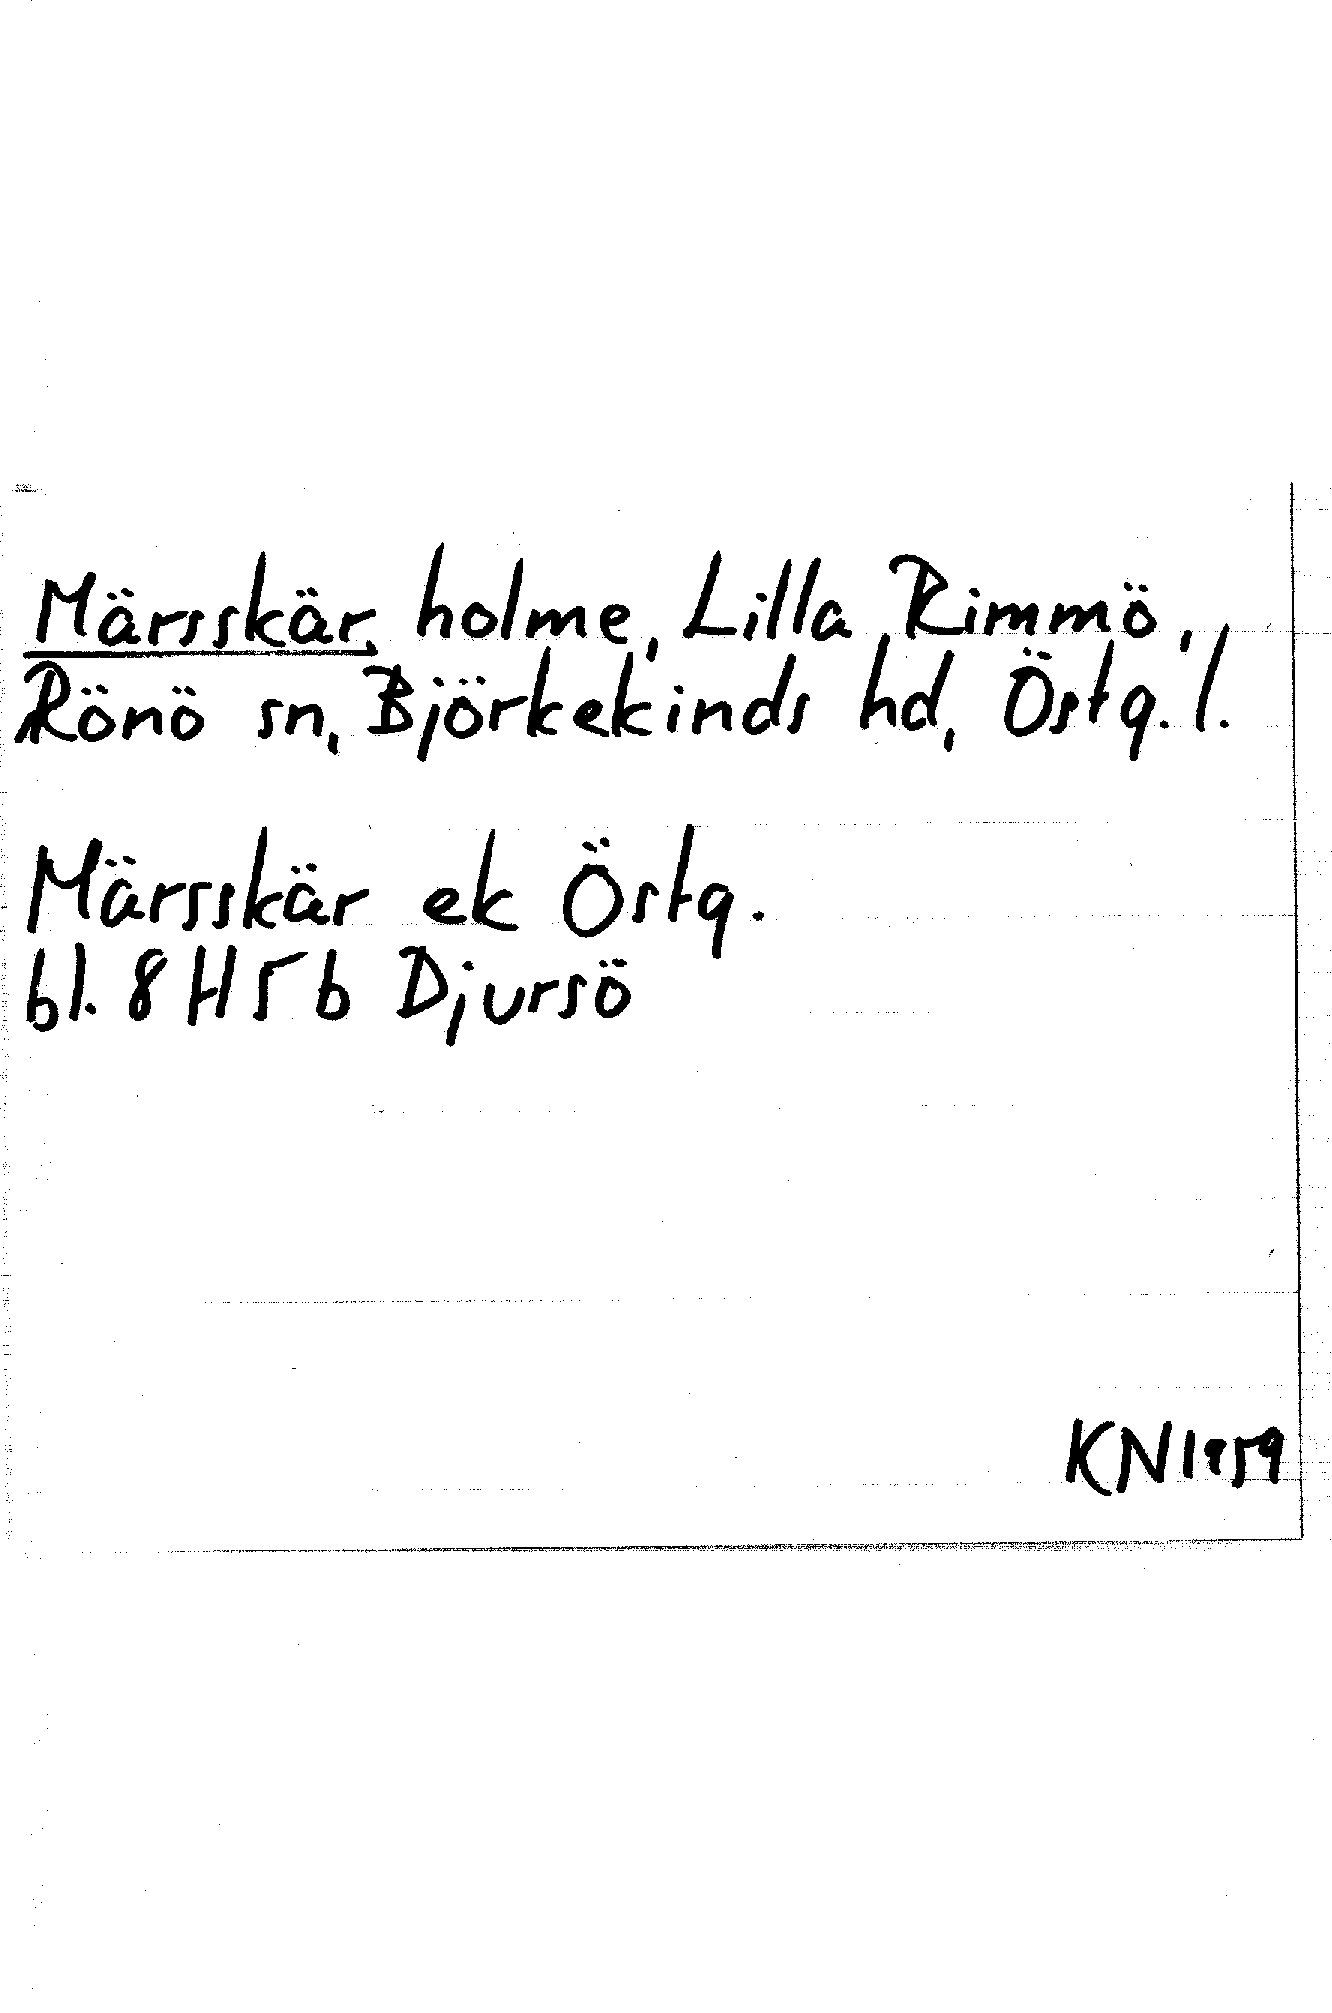 Märsskär, holme, Lilla Rimmö,
Rönö sn, Björkekinds hd, Östg. l.
Märsskär ek Östg.
bl. 8 H 5 b Djursö
KN 1959